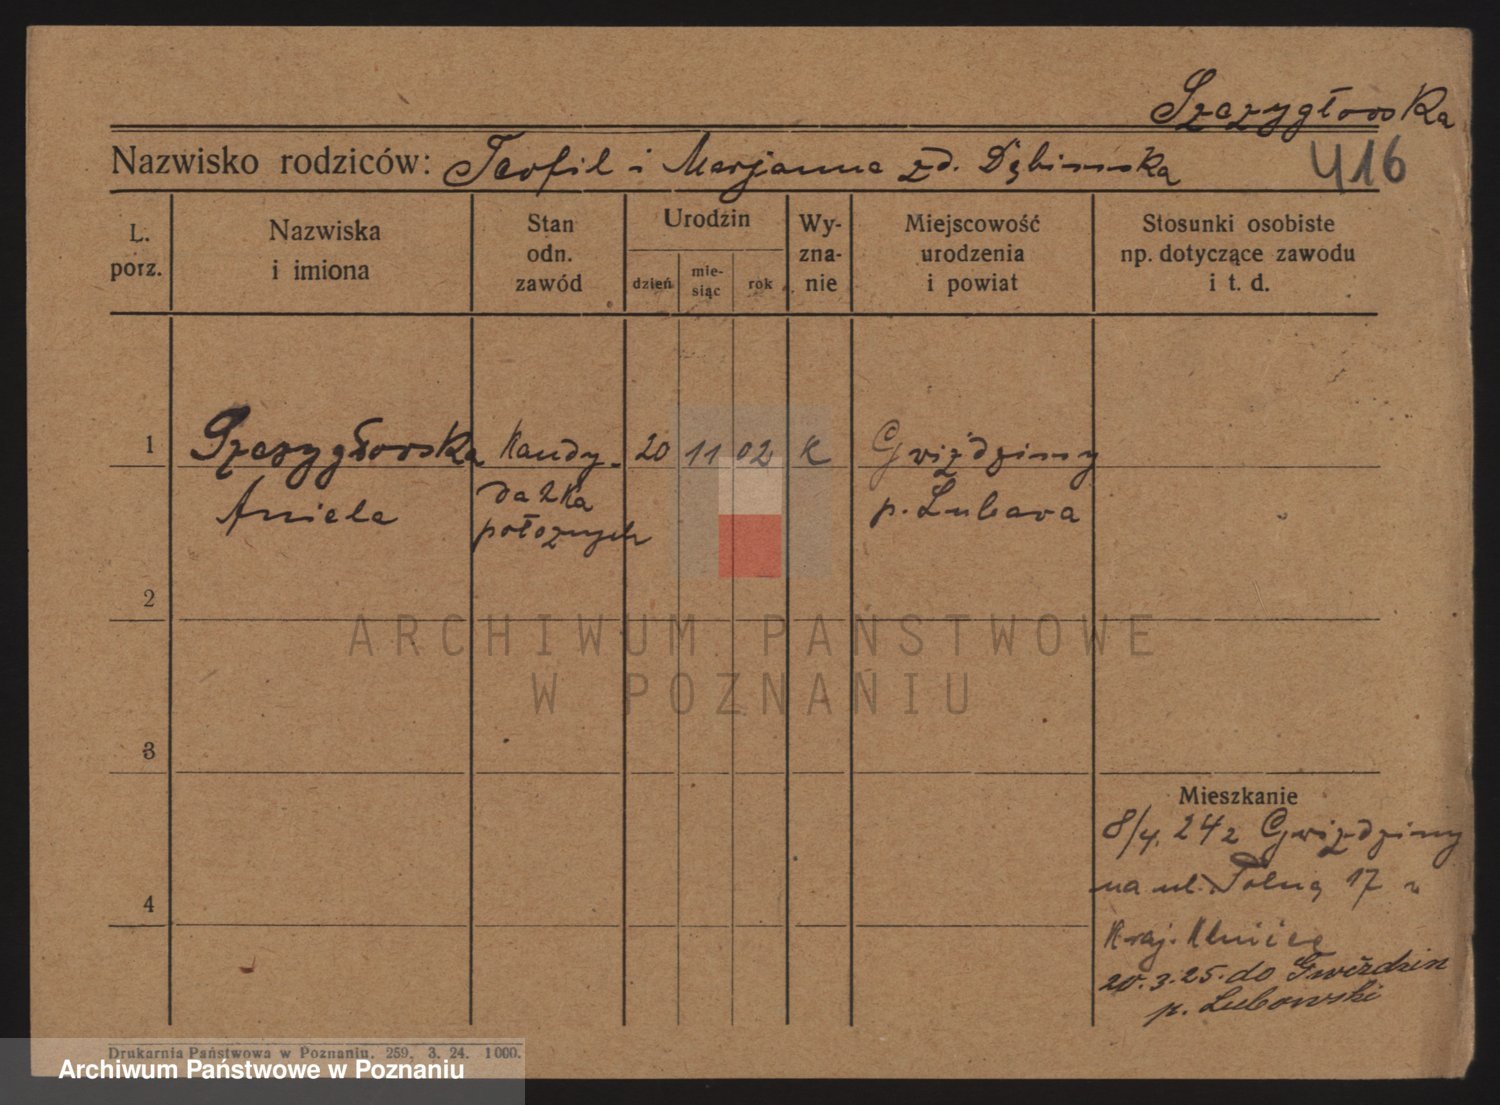 Szczygłowska
Nazwisko rodziców: Teofil i Marjanna zd. Dębinska 416
L. porz.
Nazwiska i imiona
Stan odn. zawód
Urodzin
dzień
mie-siąc
rok
Wy-zna-nie
Miejscowość urodzenia i powiat
Stosunki osobiste np. dotyczące zawodu i t. d.
1 Szczygłowska Kandy- 20 11 02 K Gwiździny
Aniela datka p. Lubawa
położnych
2
ARCHIWUM PAŃSTWOWE
W POZNANIU
3
Mieszkanie
8/4. 24 z Gwiździny
na ul. Polną 17 w
4
Kraj. Klinice
20.3.25. do Gwiździn
p. Lubawski
Drukarnia Państwowa w Poznaniu. 259. 3. 24. 1000.
Archiwum Państwowe w Poznaniu